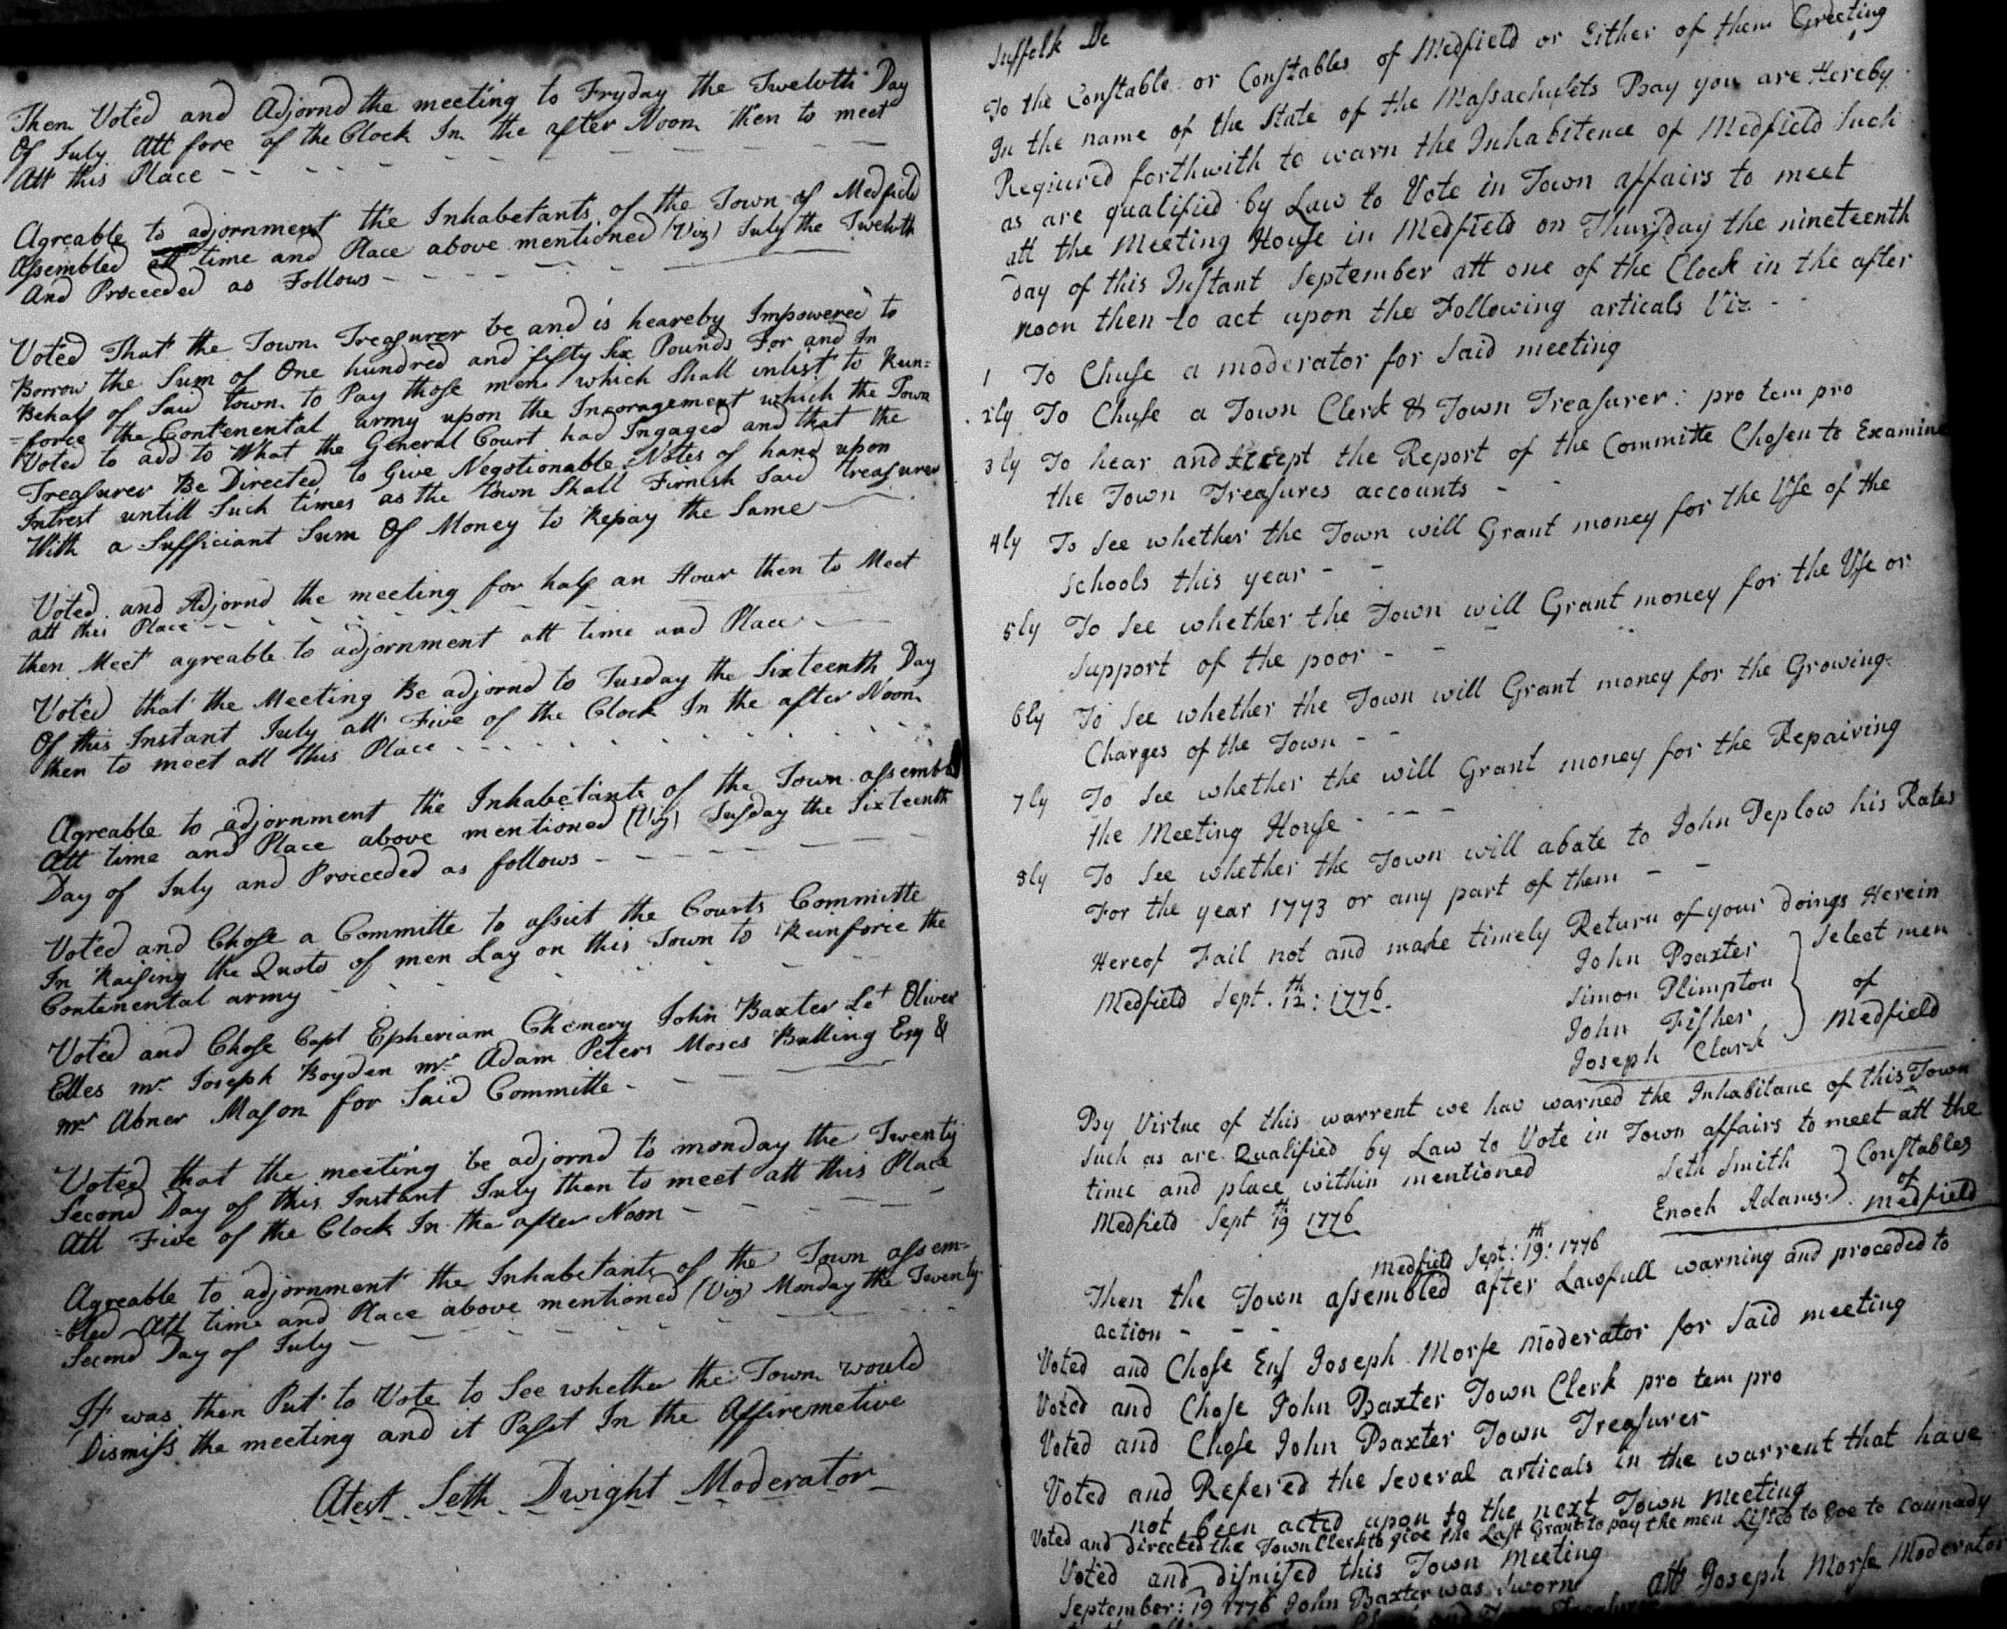 Then Voted and Adjornd the meeting to Fryday the Twelvth Day
Of July Att fore of the Clock In the after Noon then to meet
Att this Place
Agreable to adjornment the Inhabetants of the Town of Medfield
Assembled att time and Place above mentioned (Viz) July the Twelvth
And Proceeded as Follows
Voted That the Town Treasurer be and is heareby Impowered to
Borrow the Sum of One hundred and fifty Six Pounds For and In
Behalf of Said town to Pay those men which Shall inlist to Rein=
=force the Contenental army upon the Incoragement which the Town
Voted to add to What the General Court had Ingaged and that the
Treasurer Be Directed to Give Negotionable Notes of hand upon
Intrest untill Such times as the town Shall Firnish Said treasurer
With a Sufficiant Sum Of Money to Repay the Same
Voted and Adjornd the meeting for half an Hour then to Meet
att this Place
then Meet agreable to adjornment att time and Place
Voted that the Meeting Be adjornd to Tusday the Sixteenth Day
Of this Instant July att Five of the Clock In the after Noon
then to meet att this Place
Agreable to adjornment the Inhabetants of the Town assembld
Att time and Place above mentioned (Viz) Tusday the Sixteenth
Day of July and Proceeded as follows
Voted and Chose a Committe to assist the Courts Committe
In Raising the Quoto of men Lay on this Town to Reinforce the
Continental army
Voted and Chose Capt Epheriam Chenery John Baxter Let Oliver
Elles mr. Joseph Boyden mr. Adam Peters Moses Bulling Esq &
mr Abner Mason for Said Committe
Voted that the meeting be adjornd to monday the Twenty
Second Day of this Instant July then to meet att this Place
Att Five of the Clock In the after Noon
Agreable to adjornment the Inhabetants of the Town assem=
=bled Att time and Place above mentioned (Viz) Monday the Twenty
Second Day of July
It was then Put to Vote to See whether the Town would
Dismiss the meeting and it Passt In the Affiremetive
Atest Seth Dwight Moderator
Suffolk Sc
To the Constable or Constables of Medfield or Either of them Greeting
In the name of the State of the Massachusets Bay you are Hereby
Requiured forthwith to warn the Inhabitence of Medfield Such
as are qualified by Law to Vote in Town affairs to meet
att the Meeting House in Medfield on Thursday the nineteenth
day of this Instant September att one of the Clock in the after
noon then to act upon the Following articals Viz
1 To Chuse a moderator for Said meeting
2ly To Chuse a Town Clerk & Town Treasurer: pro tem pro
3ly To hear and Accept the Report of the Committe Chosen to Examine
the Town Treasures accounts
4ly To See whether the Town will Grant money for the Use of the
Schools this year
5ly To See whether the Town will Grant money for the Use or
Support of the poor
6ly To See whether the Town will Grant money for the Growing
Charges of the Town
7ly To See whether the will Grant money for the Repairing
the Meeting House
8ly To See whether the Town will abate to John Deplow his Rates
For the year 1773 or any part of them
Hereof Fail not and make timely Return of your doings Herein
Medfield Sept. 12th: 1776
John Baxter
Simon Plimpton
John Fisher
Joseph Clark
Select men
of
Medfield
By Virtue of this warrent we hav warned the Inhabitanc of this Town
Such as are Qualified by Law to Vote in Town affairs to meet att the
time and place within mentioned
Medfield Sept 19th 1776
Seth Smith
Enoch Adams
Constables
of
Medfield
Medfield Sept: 19th: 1776
Then the Town assembled after Lawfull warning and proceded to
action
Voted and Chose Ens Joseph Morse moderator for Said meeting
Voted and Chose John Baxter Town Clerk pro tem pro
Voted and Chose John Baxter Town Treasurer
Voted and Refered the Several articals in the warrent that have
not been acted upon to the next Town meeting
Voted and directed the Town Clerk to give the Last Grant to pay the men Listed to Goe to Cannady
Voted and dismised this Town Meeting
September: 19 1776 John Baxter was Sworn
Att Joseph Morse Moderator